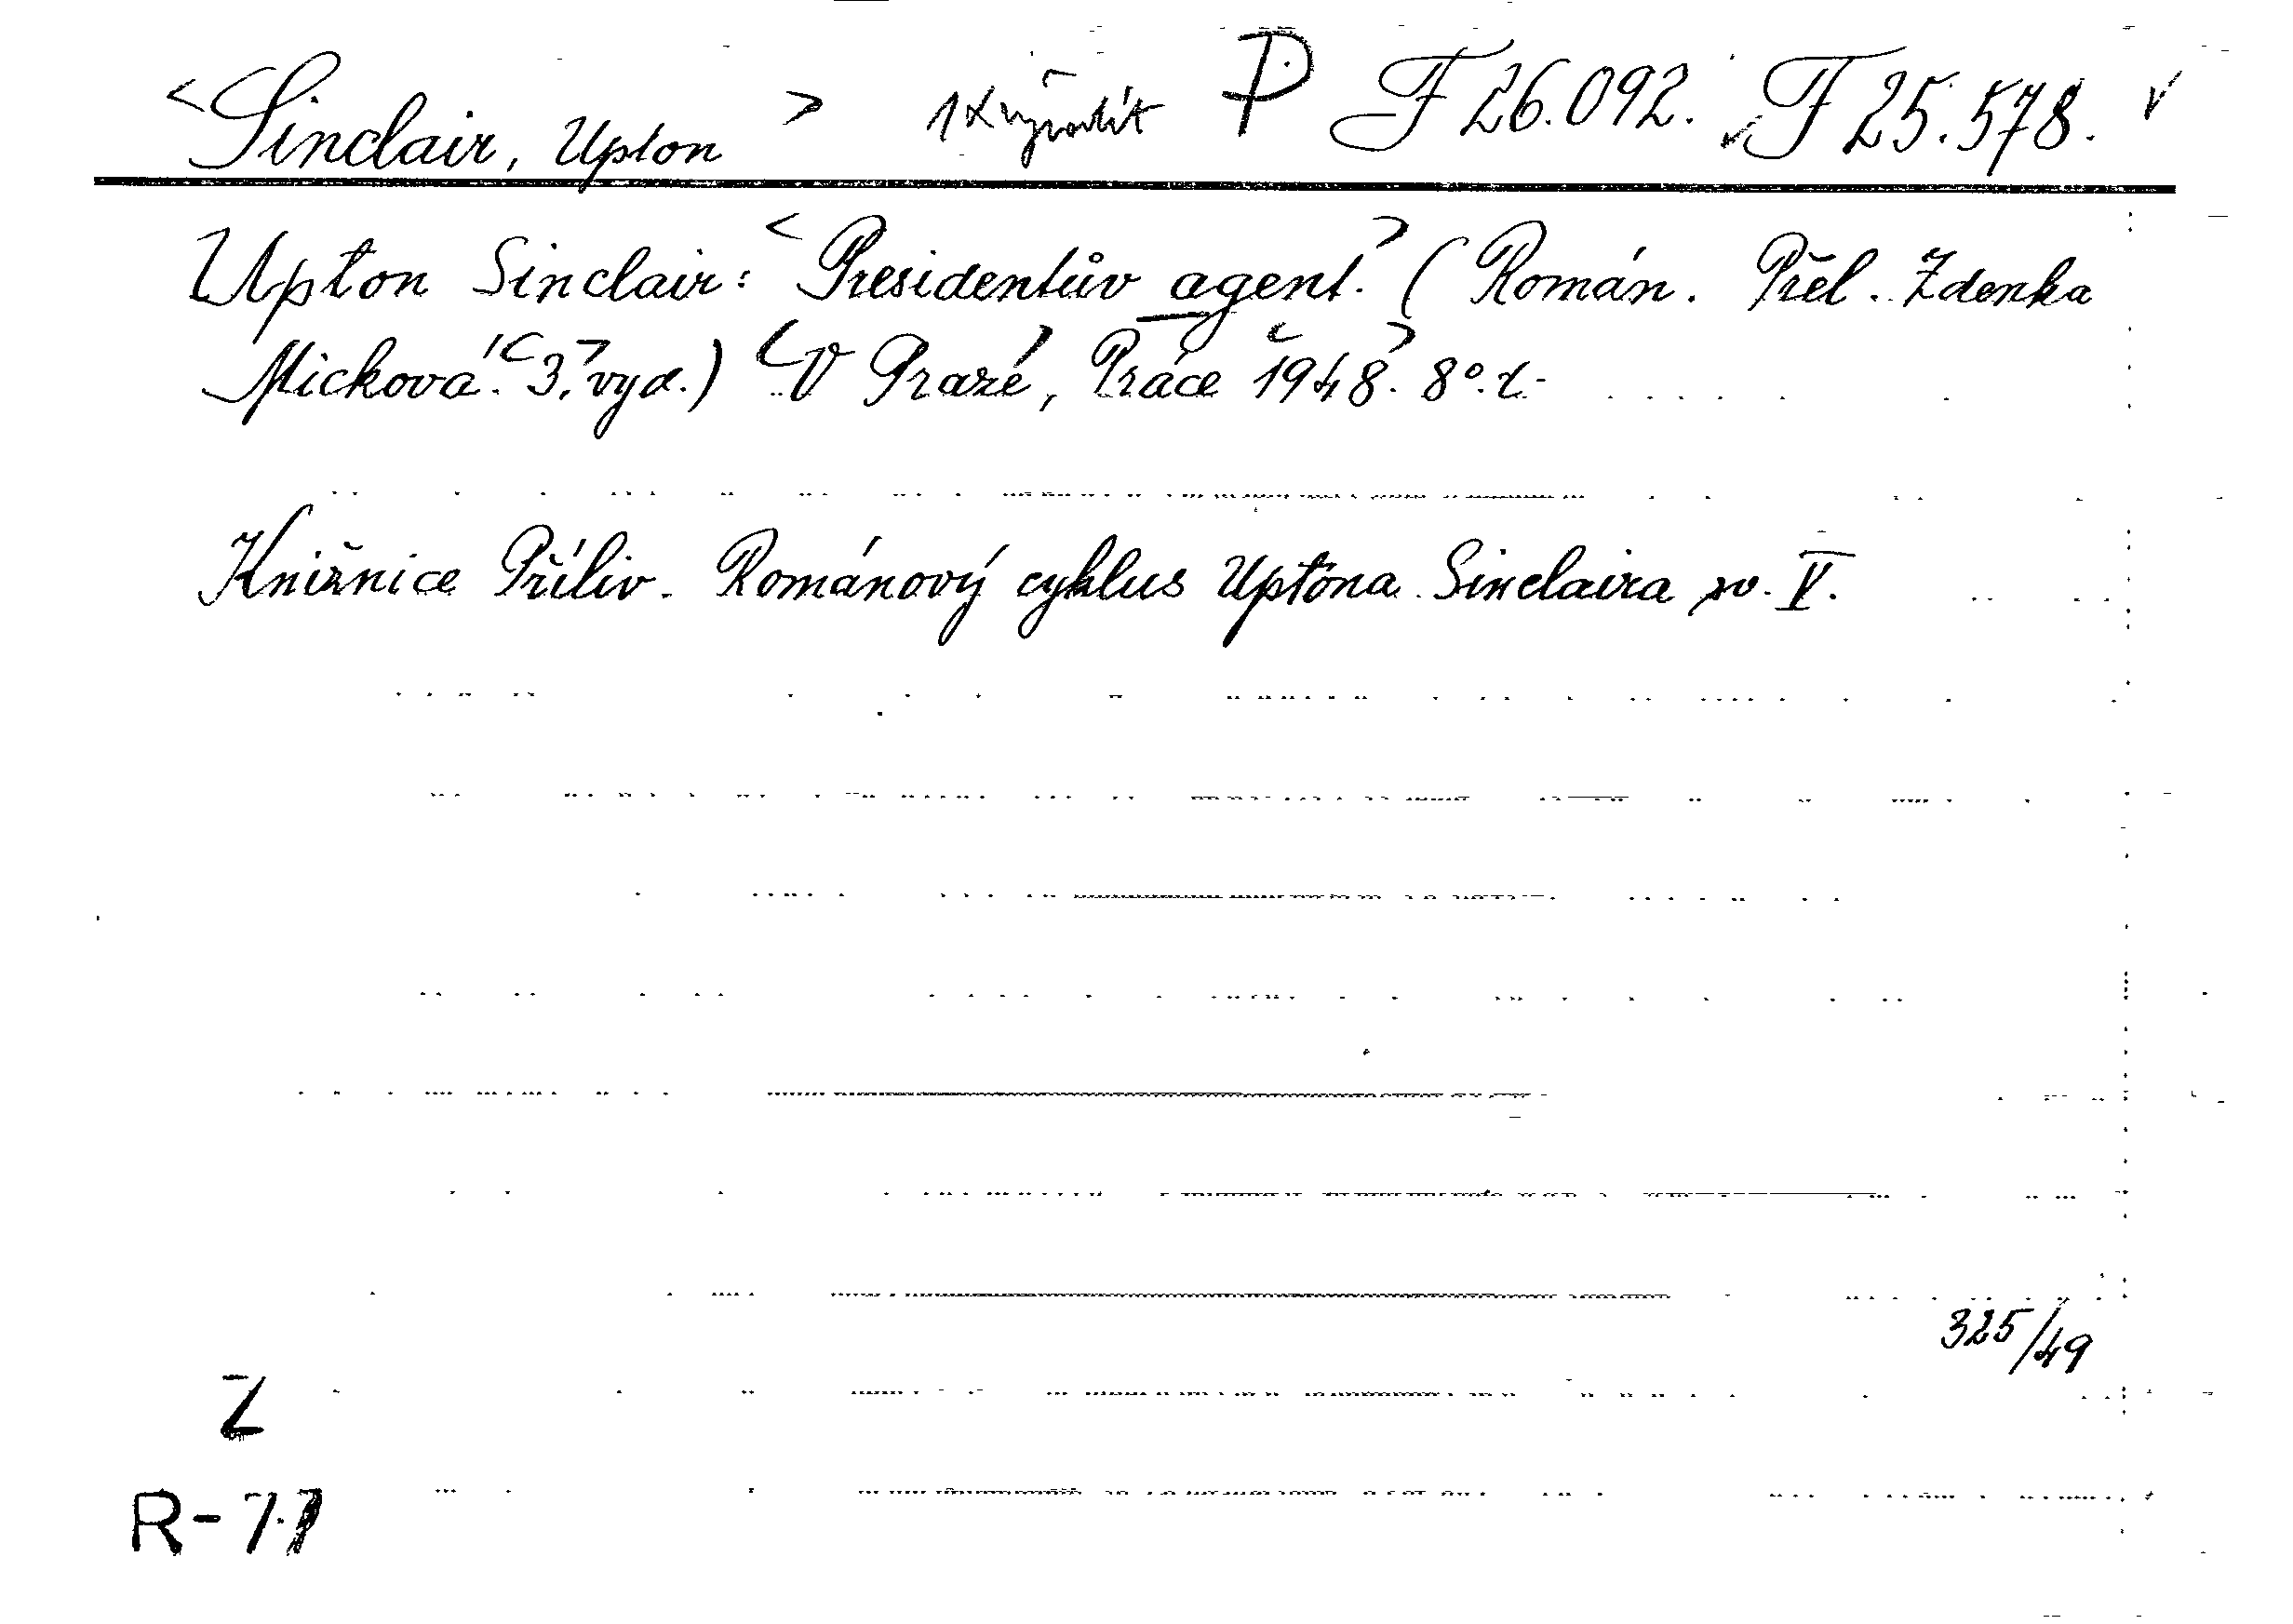 <Sinclair, Upton> 1x vyřadit P F 26.092. F 25.578.
Upton Sinclair: <Presidentův agent.> (Román. Přel. Zdenka
Micková. <3.> vyd.) <V Praze>, Práce <1948>. 8°.
Knižnice Příliv. Románový cyklus Uptona Sinclaira sv. V.
325/49
Z
R-77